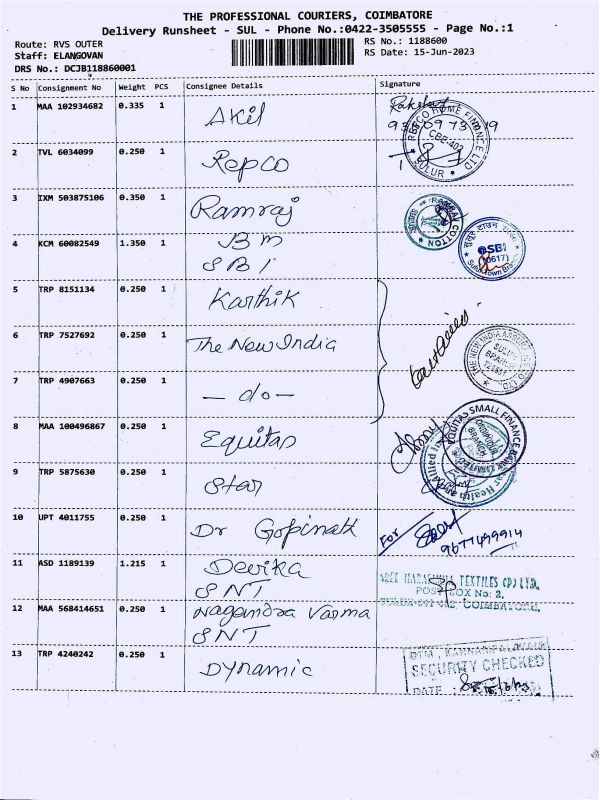 THE PROFESSIONAL COURIERS, COIMBATORE
Delivery Runsheet - SUL - Phone No.:0422-3505555 - Page No.:1
Route: RVS OUTER
RS No.: 1188600
Staff: ELANGOVAN
RS Date: 15-Jun-2023
DRS No.: DCJB118860001
S No Consignment No Weight PCS Consignee Details Signature
1 MAA 102934682 0.335 1 Akil
2 TVL 6034099 0.250 1 Repco
REPCO HOME FINANCE LTD
CBE-402
SULUR
3 IXM 503875106 0.350 1 Ramraj
RAMRAJ COTTON
4 KCM 60082549 1.350 1 BM
SBI
SBI
5 TRP 8151134 0.250 1 Karthik
6 TRP 7527692 0.250 1 The New India
THE NEW INDIA ASSURANCE CO. LTD.
SULUR
BRANCH
7 TRP 4907663 0.250 1 - do -
8 MAA 100496867 0.250 1 Equitas
EQUITAS SMALL FINANCE BANK LIMITED
BRANCH
9 TRP 5875630 0.250 1 Star
Star Health and Allied
10 UPT 4011755 0.250 1 Dr Gopinath For
9677499914
11 ASD 1189139 1.215 1 Devika
SNT
TEXTILES (P) LTD.
POST BOX No: 2,
COIMBATORE,
12 MAA 568414651 0.250 1 Nagendra Varma
SNT
13 TRP 4240242 0.250 1 Dynamic
SECURITY CHECKED
DATE :